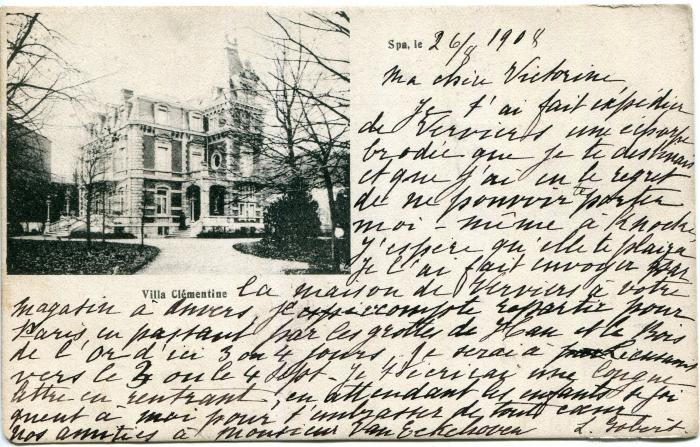 Spa, le 26/8 1908
Ma chère Victorine
Je t'ai fait expédier
de Verviers une écharpe
brodée que je te destinais
et que j'ai eu le regret
de ne pouvoir porter
moi-même à Knocke
J'espère qu'elle te plaira
Je l'ai fait envoyer par
Villa Clémentine
la maison de Verviers à votre
magasin à Anvers, je compte repartir pour
Paris, en passant par les grottes de Han et le Bois
de l'Or d'ici 3 ou 4 jours. Je serai à
vers le 3 ou le 4 Sept. Je t'écrirai une longue
lettre en rentrant, en attendant les enfants se joi
gnent à moi pour t'embrasser de tout cœur
nos amitiés à Monsieur Van Eckehoven
L. Gobert